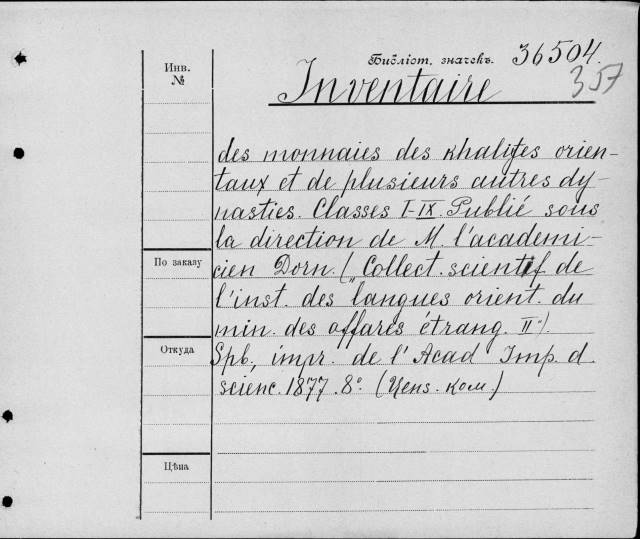 Библіот. значекъ. 36504.
357
Инв.
№
Inventaire
des monnaies des khalifes orien-
taux et de plusieurs autres dy-
nasties. Classes I-IX. Publié sous
la direction de M. l'academi-
По заказу
cien Dorn. („Collect. scientif. de
l'inst. des langues orient. du
min. des affares étrang. II").
Откуда
Spb., impr. de l'Acad Imp. d.
scienc. 1877. 8° (Ценз. ком.)
Цѣна